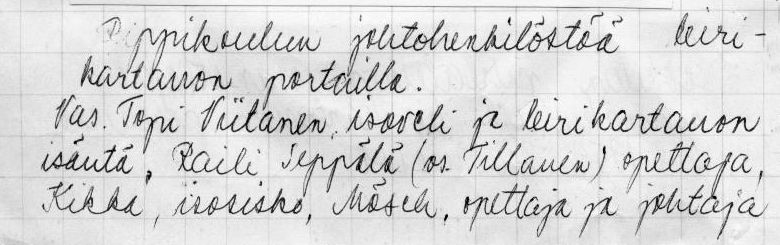 Rippikoulun johtohenkilöstöä leiri-
kartanon portailla.
Vas. Topi Viitanen, isoveli ja leirikartanon
isäntä, Raili Seppälä (os. Tillanen) opettaja,
Kikka, isosisko, Mösch, opettaja ja johtaja